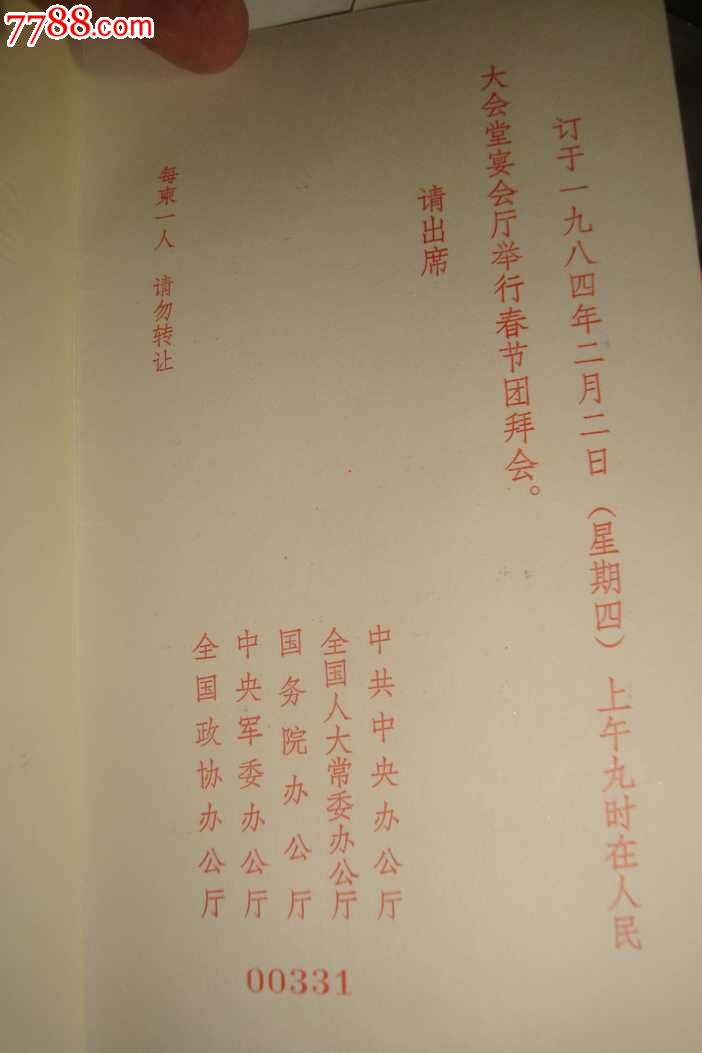 7788.com
订于一九八四年二月二日（星期四）上午九时在人民
大会堂宴会厅举行春节团拜会。
请出席
中共中央办公厅
全国人大常委办公厅
国务院办公厅
中央军委办公厅
全国政协办公厅
每柬一人 请勿转让
00331